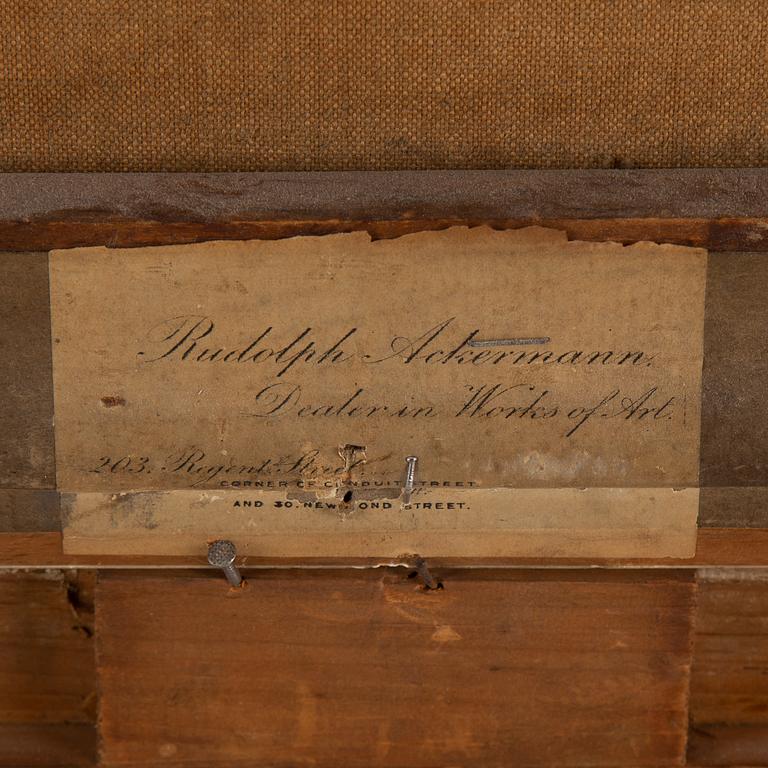 Rudolph Ackermann,
Dealer in Works of Art.
203. Regent Street
CORNER OF CONDUIT STREET
AND 30. NEW BOND STREET.